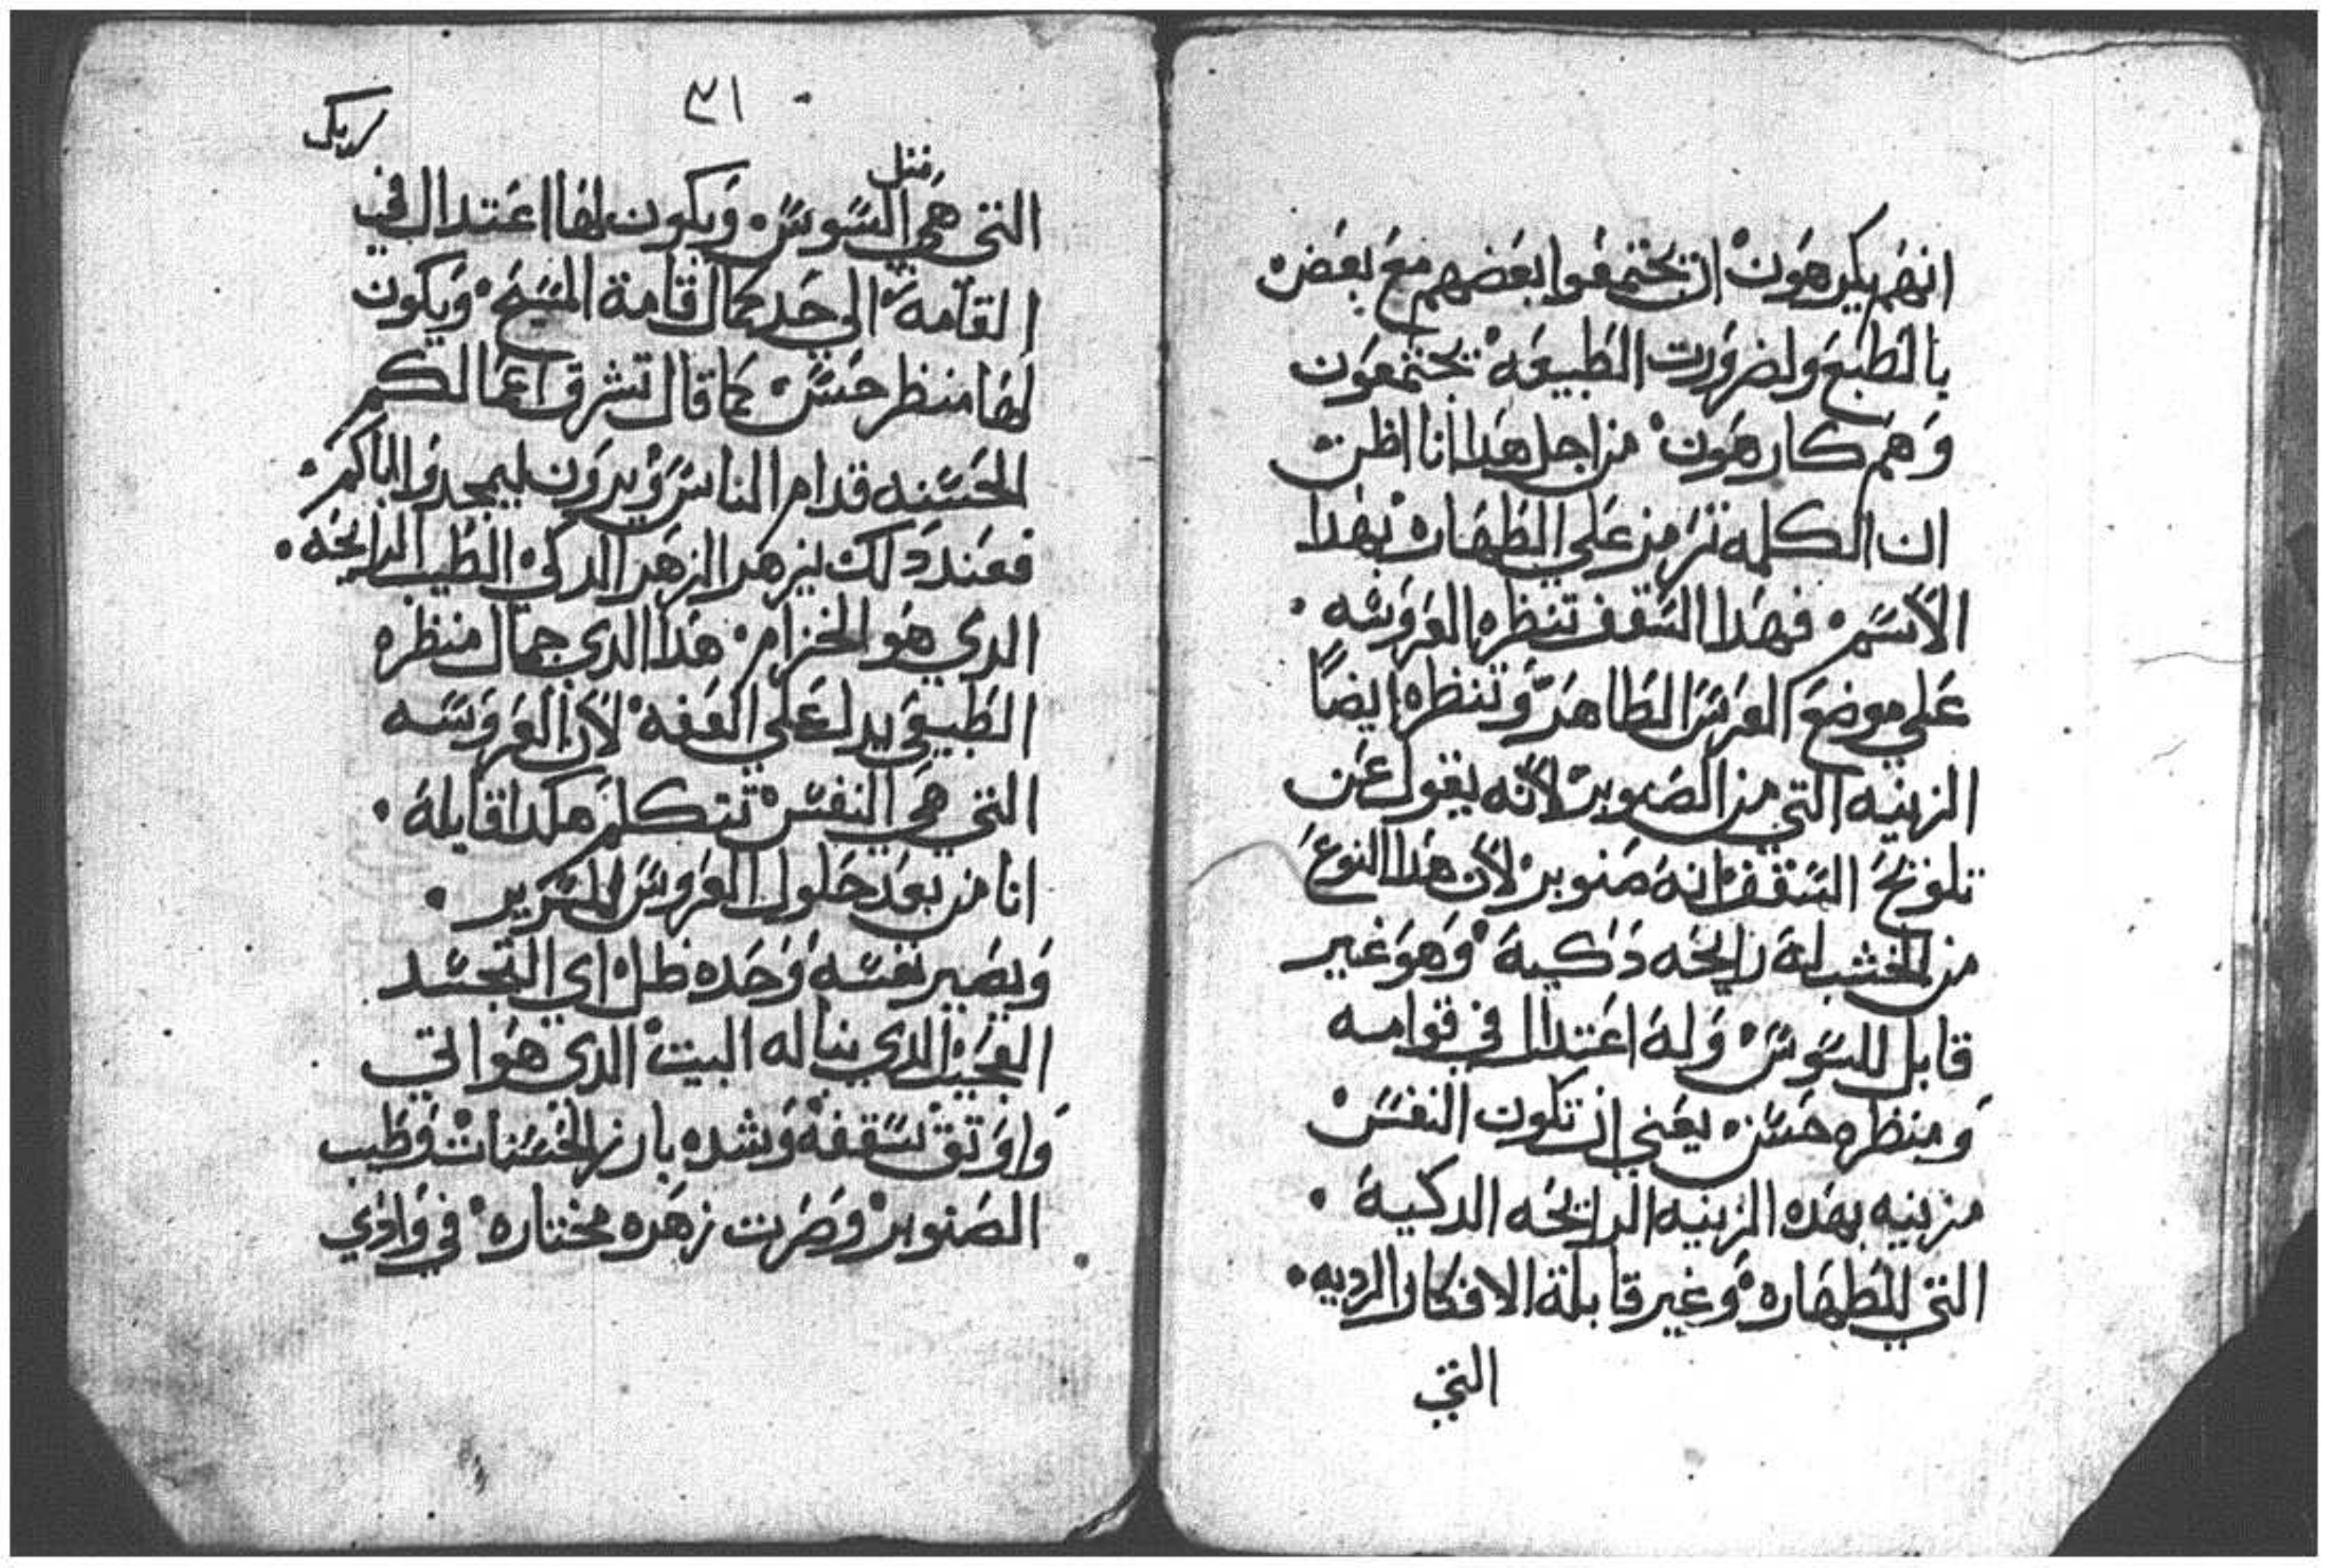 انهم يكرهون ان يجتمعوا بعضهم مع بعض
بالطبع ولضرورت الطبيعه يجتمعون
وهم كارهون من اجل هدا انا اظن
ان الكلمه ترمز علي الطهاره بهدا
الاسم فهدا السقف تنظره العروسه
علي موضع العرس الطاهر وتنظره ايضاً
الزينه التي من الصنوبر لانه يقول عن
تلويح السقف انه صنوبر لان هدا النوع
من الخشب له رايحه دكية وهو غير
قابل للسوس وله اعتدال في قوامه
ومنظره حسن يعني ان تكون النفس
مزينيه بهده الزينيه الرايحه الدكية
التي للطهاره وغير قابلة الافكار الرديه
التي
٣١
مثل
التي هي السوس ويكون لها اعتدال في
القامة الي حد كمال قامة المسيح ويكون
لها منظر حسن كما قال تشرق اعمالكم
الحسنه قدام الناس ويرون ليمجدوا اباكم
فعند دلك يزهر الزهر الدكي الطيب الرايحه
الدي هو الخزام هدا الدي جمال منظره
الطبيعي يدل علي العفه لان العروسه
التي هي النفس تتكلم هكدا قايلة
انا من بعد حلول العروس السرير
ويصير نفسه وحده ظل اي التجسد
العجيب الدي بنا له البيت الدي هو اتي
واوتق سقفة وشده بارز الحسنات وطيب
الصنوبر وصرت زهره مختاره في وادي